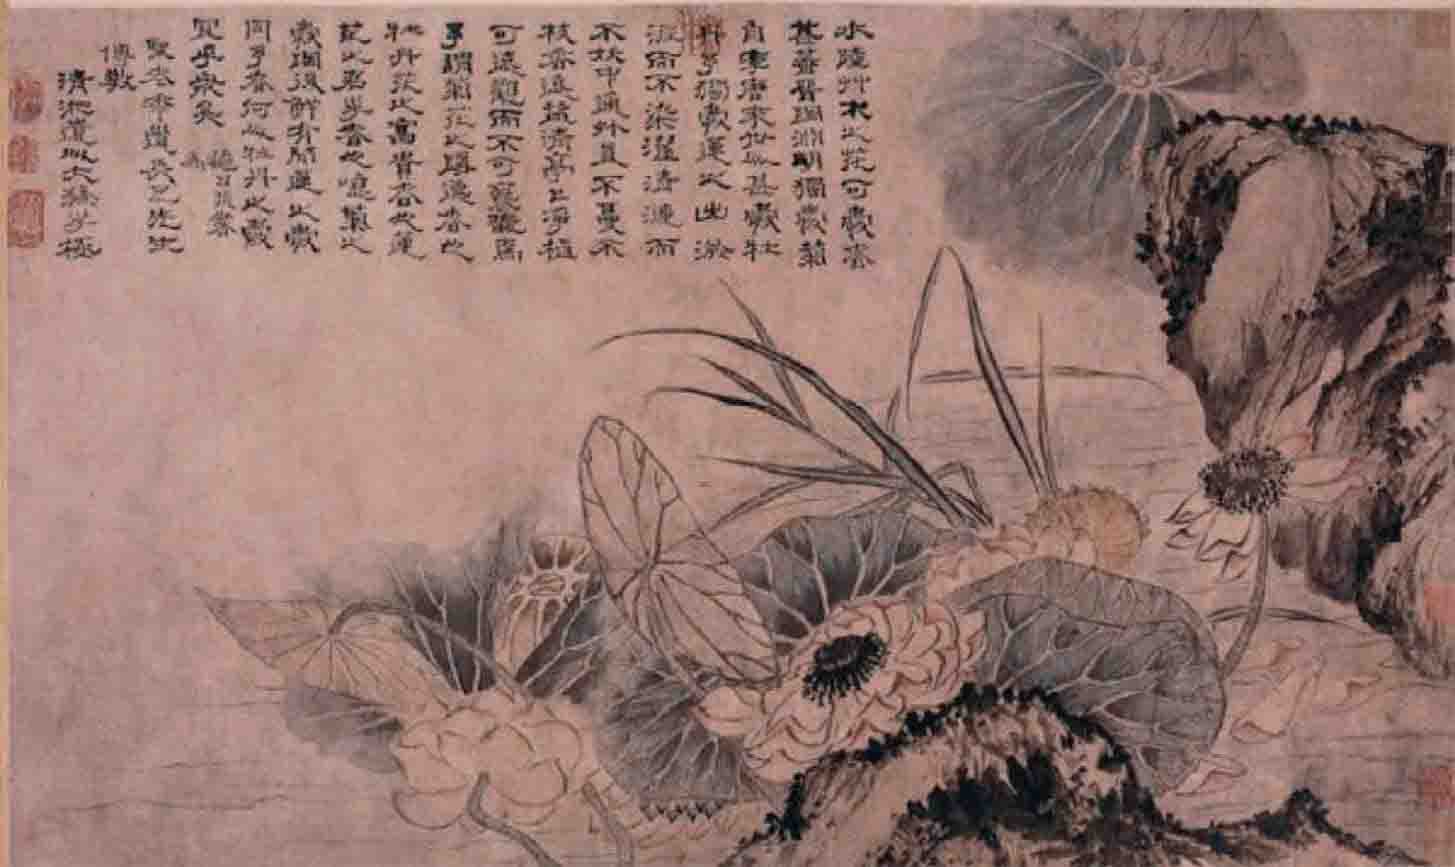 水陸艸木之花可愛者
甚蕃晉陶淵明獨愛菊
自李唐來世人甚愛牡
丹予獨愛蓮之出淤
泥而不染濯清漣而
不妖中通外直不蔓不
枝香遠益清亭亭淨植
可遠觀而不可褻翫焉
予謂菊花之隱逸者也
牡丹花之富貴者也蓮
花之君子者也噫菊之
愛陶後鮮有聞蓮之愛
同予者何人牡丹之愛
宜乎眾矣
道長兄先生
博教
清湘遺人大滌子極